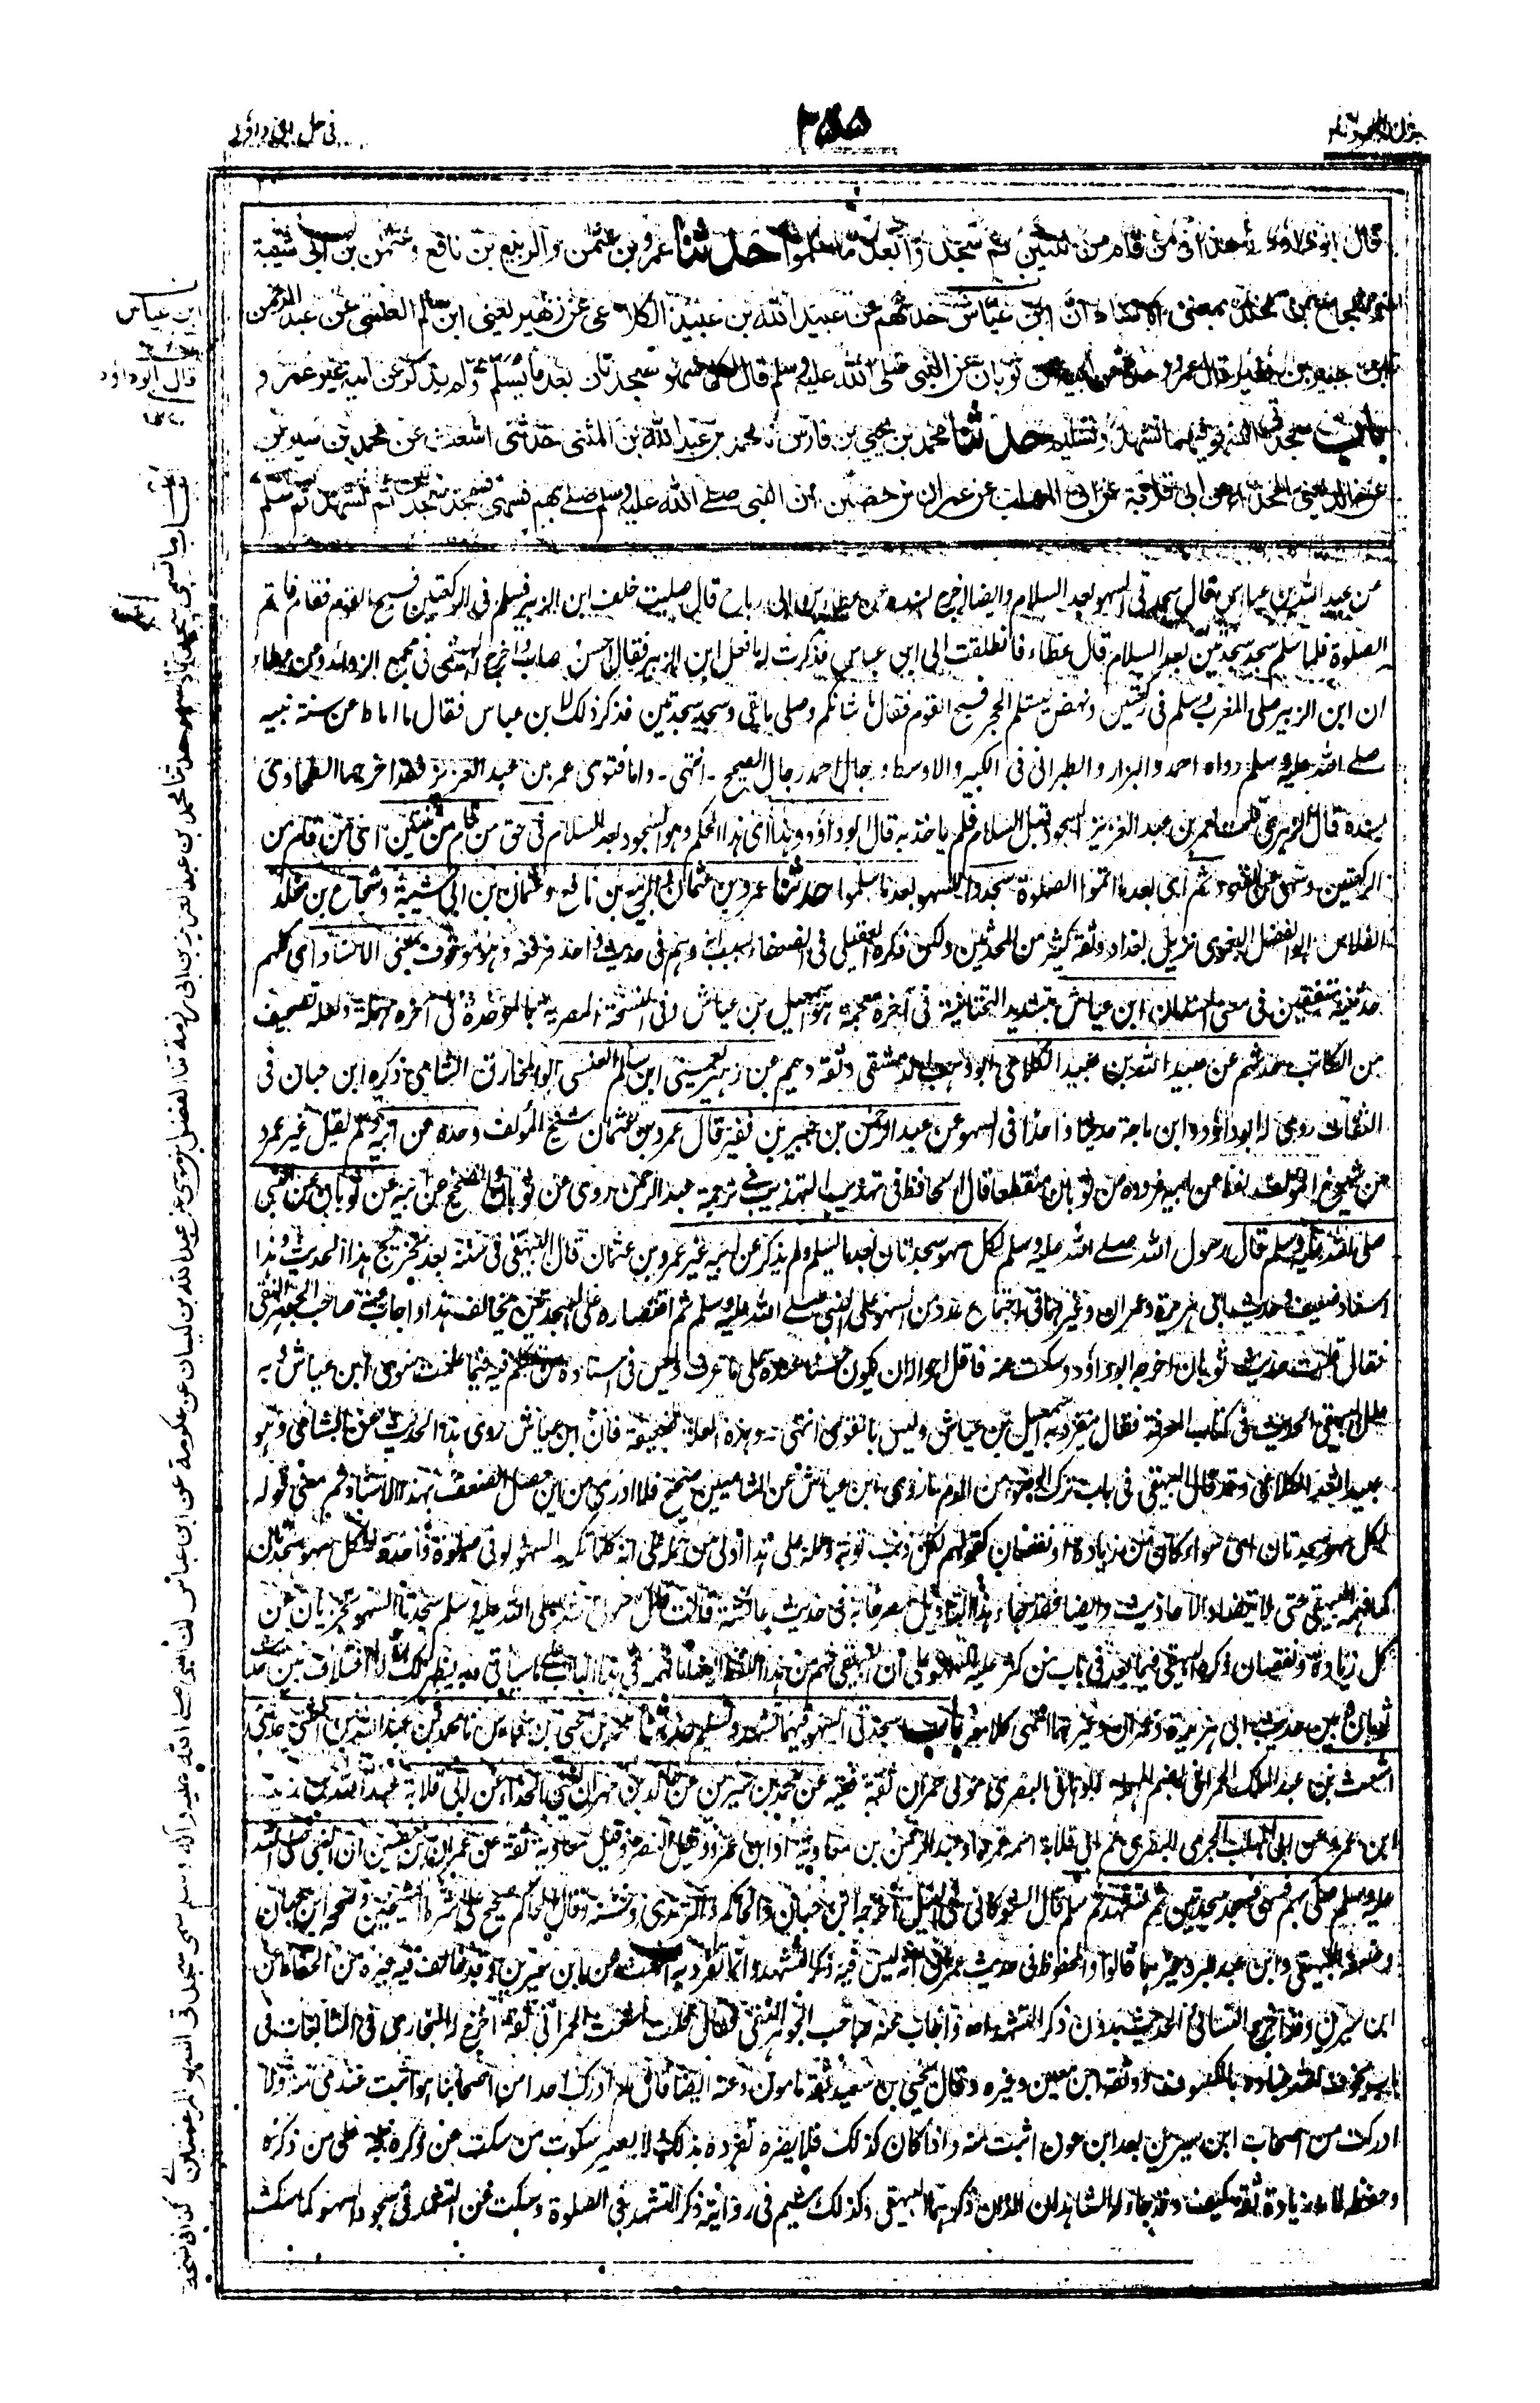 في حل ابي داؤد
قال ابو داؤد هذا في من قام من ثنتين ثم سجدوا بعد ما سلموا حدثنا عمرو بن عثمن والربيع بن نافع وعثمن بن ابي شيبة
بمعنى الاسناد ان ابن عياش حدثهم عن عبيد الله بن عبيد الكلاعي عن زهير يعني ابن سالم العنسي عن عبد الرحمن
بن جبير بن نفير قال عمرو عن ثوبان عن النبي صلى الله عليه وسلم قال لكل سهو سجدتان بعد ما يسلم ولم يذكر عن ابيه غير عمرو
باب سجدتي السهو فيهما تشهد وتسليم حدثنا محمد بن يحيى بن فارس نا محمد بن عبد الله بن المثنى حدثني اشعث عن محمد بن سيرين
عن خالد يعني الحذاء عن ابي قلابة عن ابي المهلب عن عمران بن حصين ان النبي صلے الله عليه وسلم صلے بهم فسهى فسجد سجدتين ثم تشهد ثم سلم
عن عبد الله بن عباس قال سجدتي السهو بعد السلام وايضا اخرج بسنده عن عطاء بن ابي رباح قال صليت خلف ابن الزبير فسلم في الركعتين فسبح القوم فقام فاتم
الصلوة فلما سلم سجد سجدتين بعد السلام قال عطاء فانطلقت الى ابن عباس فذكرت له ما فعل ابن الزبير فقال احسن واصاب واخرج الهيثمي في مجمع الزوائد وعن عطاء
ان ابن الزبير صلى المغرب وسلم في ركعتين ونهض ليستلم الحجر فسبح القوم فقال ما شانكم وصلى ما بقي وسجد سجدتين فذكر ذلك لابن عباس فقال ما اماط عن سنة نبيه
صلے الله عليه وسلم رواه احمد والبزار والطبراني في الكبير والاوسط ورجال احمد رجال الصحيح ـ انتهى ـ واما فتوى عمر بن عبد العزيز فقد اخرجها الطحاوي
بسنده قال الزهري قلت لعمر بن عبد العزيز السجود قبل السلام فلم ياخذ به قال ابو داؤد وهذا اي هذا الحكم وهو السجود بعد السلام في حق من قام من ثنتين اي من قام من
الركعتين وسهى عن القعود ثم اي بعد ما اتموا الصلوة سجدوا للسهو بعد ما سلموا حدثنا عمرو بن عثمان والربيع بن نافع وعثمان بن ابي شيبة وشجاع بن مخلد
الفلاس ابو الفضل البغوي نزيل بغداد وثقه كثير من المحدثين ولكن ذكره العقيلي في الضعفاء بسبب انه وهم في حديث واحد فرفعه وهو موقوف بمعنى الاسناد اي كلهم
حدثوا متفقين في معنى الاسناد ان ابن عياش بتشديد التحتانية في آخره معجمة هو اسمعيل بن عياش وفي النسخة المصرية بالموحدة في آخره مهملة ولعله تصحيف
من الكاتب حدثهم عن عبيد الله بن عبيد الكلاعي ابو وهب الدمشقي وثقه دحيم عن زهير يعني ابن سالم العنسي ابو المخارق الشامي ذكره ابن حبان في
الثقات روى له ابو داؤد وابن ماجة حديثا واحدا في السهو عن عبد الرحمن بن جبير بن نفير قال عمرو بن عثمان شيخ المؤلف وحده عن ابيه ولم يقل غير عمرو
من شيوخ المؤلف لفظ عن ابيه فرووه عن ثوبان منقطعا قال الحافظ في تهذيب التهذيب في ترجمة عبد الرحمن روى عن ثوبان والصحيح عن ابيه عن ثوبان عن النبي
صلى الله عليه وسلم قال رسول الله صلے الله عليه وسلم لكل سهو سجدتان بعد ما يسلم ولم يذكر عن ابيه غير عمرو بن عثمان قال البيهقي في سننه بعد تخريج هذا الحديث وهذا
اسناد ضعيف وحديث ابي هريرة وعمران وغيرهما في اجتماع عدد من السهو على النبي صلے الله عليه وسلم ثم اقتصاره على السجدتين يخالف هذا واجاب عنه صاحب الجوهر النقي
فقال قلت حديث ثوبان اخرجه ابو داؤد وسكت عنه فاقل احواله ان يكون حسنا عنده على ما عرف وليس في اسناده من تكلم فيه فيما علمت سوى ابن عياش وبه
علل البيهقي الحديث في كتاب المعرفة فقال ينفرد به اسمعيل بن عياش وليس بالقوي انتهى ـ وهذه العلة ضعيفة فان ابن عياش روى هذا الحديث عن الشامي وهو
عبيد الله الكلاعي وقد قال البيهقي في باب ترك الوضوء من الدم ما روى ابن عياش عن الشاميين صحيح فلا ادري من اين حصل الضعف بهذا الاسناد ثم معنى قوله
لكل سهو سجدتان اي سواء كان من زيادة او نقصان كقولهم لكل ذنب توبة وحمله على هذا اولى من حمله على انه كلما تكرر السهو لو في صلوة واحدة لكل سهو سجدتان
كما فهمه البيهقي حتى لا يتضاد الاحاديث وايضا فقد جاء هذا التاويل مصرحا به في حديث عائشة قالت قال رسول الله صلى الله عليه وسلم سجدتا السهو تجزيان عن
كل زيادة ونقصان ذكره البيهقي فيما بعد في باب من كثر عليه السهو على ان البيهقي فهم من هذا اللفظ ايضا ما فهمه في هذا الباب على ما سيأتي وبه يظهر لك انه لا اختلاف بين حديث
ثوبان وبين حديث ابي هريرة وعمران وغيرهما انتهى كلامه باب سجدتي السهو فيهما تشهد وتسليم حدثنا محمد بن يحيى بن فارس نا محمد بن عبد الله بن المثنى حدثني
اشعث بن عبد الملك الحمراني بضم المهملة ابو هاني البصري مولى حمران ثقة فقيه عن محمد بن سيرين عن خالد بن مهران يعني الحذاء عن ابي قلابة عبد الله بن زيد
ابن عمرو عن ابي المهلب الجرمي البصري عم ابي قلابة اسمه عمرو او عبد الرحمن بن معاوية او ابن عمرو وقيل النضر وقيل معاوية ثقة عن عمران بن حصين ان النبي صلى الله
عليه وسلم صلى بهم فسهى فسجد سجدتين ثم تشهد ثم سلم قال الشوكاني في النيل اخرجه ابن حبان والحاكم والترمذي وحسنه وقال الحاكم صحيح على شرط الشيخين وصححه ابن حبان
وضعفه البيهقي وابن عبد البر وغيرهما قالوا والمحفوظ في حديث عمران انه ليس فيه ذكر التشهد وانما تفرد به اشعث عن ابن سيرين وقد خالف فيه غيره من الحفاظ عن
ابن سيرين وقد اخرج النسائي الحديث بدون ذكر التشهد اه واجاب عنه صاحب الجوهر النقي فقال قلت اشعث الحمراني ثقة اخرج له البخاري في المتابعات في
باب يخوف الله عباده بالكسوف ووثقه ابن معين وغيره وقال يحيى بن سعيد ثقة مامون وعنه ايضا قال لم ادرك احدا من اصحابنا هو اثبت عندي منه ولا
ادركت من اصحاب ابن سيرين بعد ابن عون اثبت منه واذا كان كذلك فلا يضره تفرده بذلك ولا يصير سكوت من سكت عن ذكره حجة على من ذكره
وحفظه لانه زيادة ثقة كيف وقد جاء له الشاهدان اللذان ذكرهما البيهقي وكذلك هشيم في روايته ذكر التشهد في الصلوة وسكت عن التشهد في سجود السهو كما سكت
ابن عباس
قال ابو داود